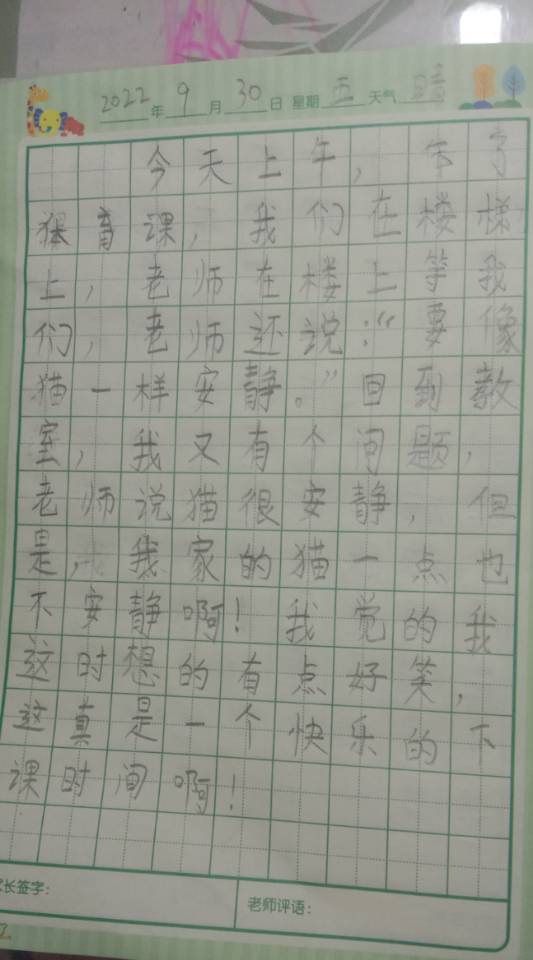 2022年9月30日 星期五 天气晴
今天上午,
育课,我们在楼梯
上,老师在楼上等我
们,老师还说:“要像
猫一样安静。”回到教
室,我又有个问题,
老师说猫很安静,但
是,我家的猫一点也
不安静啊!我觉的我
这时想的有点好笑,
这真是一个快乐的下
课时间啊!
长签字:
老师评语: